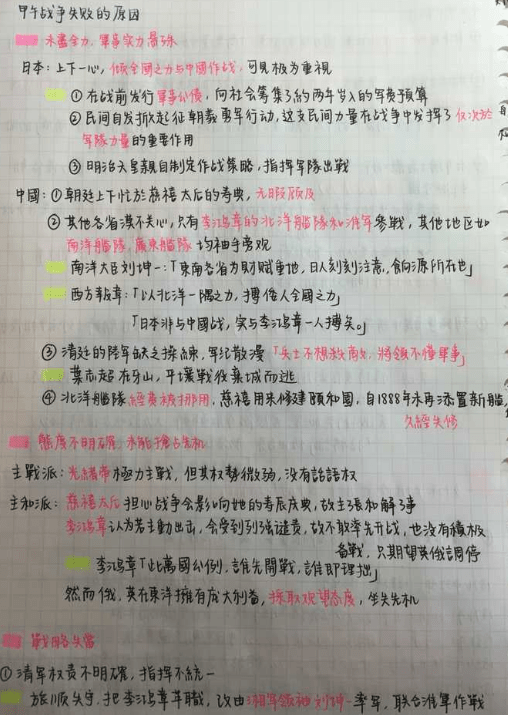 甲午战争失败的原因
未盡全力、軍事实力懸殊
日本：上下一心，傾全國之力与中國作战，可見極为重視
① 在战前发行軍事公債，向社会籌集了約两年岁入的军费預算
② 民间自发掀起征朝義勇军行动，这支民间力量在战争中发揮了仅次於
军隊力量的重要作用
③ 明治天皇親自制定作战策略，指挥军隊出戰
中國：①朝廷上下忙於慈禧太后的寿典，无暇顧及
② 其他各省漠不关心，只有李鴻章的北洋艦隊和淮军參戰，其他地区如
南洋艦隊、廣東艦隊均袖手旁观
南洋大臣刘坤一：「東南各省为財賦重地，日人刻刻注意，餉源所在也」
西方報章：「以北洋一隅之力，搏倭人全國之力」
「日本非与中國战，实与李鴻章一人搏矣。」
③ 清廷的陸军缺乏操練，军纪散漫「兵士不想救商女，將領不懂軍事」
葉志超在牙山，平壤戰役棄城而逃
④ 北洋艦隊經費被挪用，慈禧用来修建頤和園，自1888年未再添置新艦，
久經失修
態度不明確，未能搶占先机
主戰派：光緒帝極力主戰，但其权勢微弱，没有話語权
主和派：慈禧太后担心战争会影响她的寿辰庆典，故主張和解了事
李鴻章认为若主動出击，会受到列強譴責，故不敢率先开战，也没有積极
备戰，只期望英俄調停
李鴻章「此萬國公例，誰先開戰，誰即理拙」
然而俄、英在東洋擁有庞大利益，採取观望態度，坐失先机
戰略失當
① 清军权責不明確，指挥不統一
旅順失守，把李鴻章革職，改由湘軍領袖刘坤一率军，联合淮軍作戰